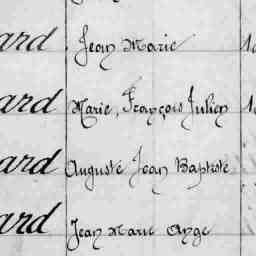 ard Jean Marie
ard Marie, François Julien
ard Auguste Jean Baptiste
ard Jean Marie Ange